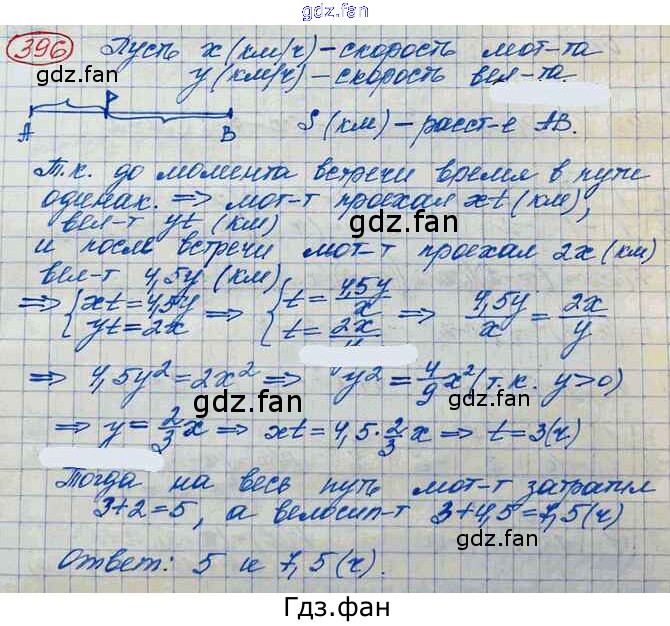 gdz.fan
396 Пусть x (км/ч) – скорость мот-та
gdz.fan
y (км/ч) – скорость вел-та.
A P B S (км) – расст-е AB.
gdz.fan
Т.к. до момента встречи время в пути
одинак. => мот-т проехал xt (км),
gdz.fan gdz.fan
вел-т yt (км)
и после встречи мот-т проехал 2x (км)
вел-т 4,5y (км)
=> { xt = 4,5y yt = 2x => { t = 4,5y/x t = 2x/ => 4,5y/x = 2x/y
=> 4,5y² = 2x² => y² = 4/9 x² (т.к. y>0)
gdz.fan gdz.fan
=> y = 2/3 x => xt = 4,5 · 2/3 x => t = 3 (ч)
Тогда на весь путь мот-т затратил
gdz.fan
3+2=5, а велосип-т 3+4,5=7,5 (ч)
gdz.fan
Ответ: 5 и 7,5 (ч).
Гдз.фан